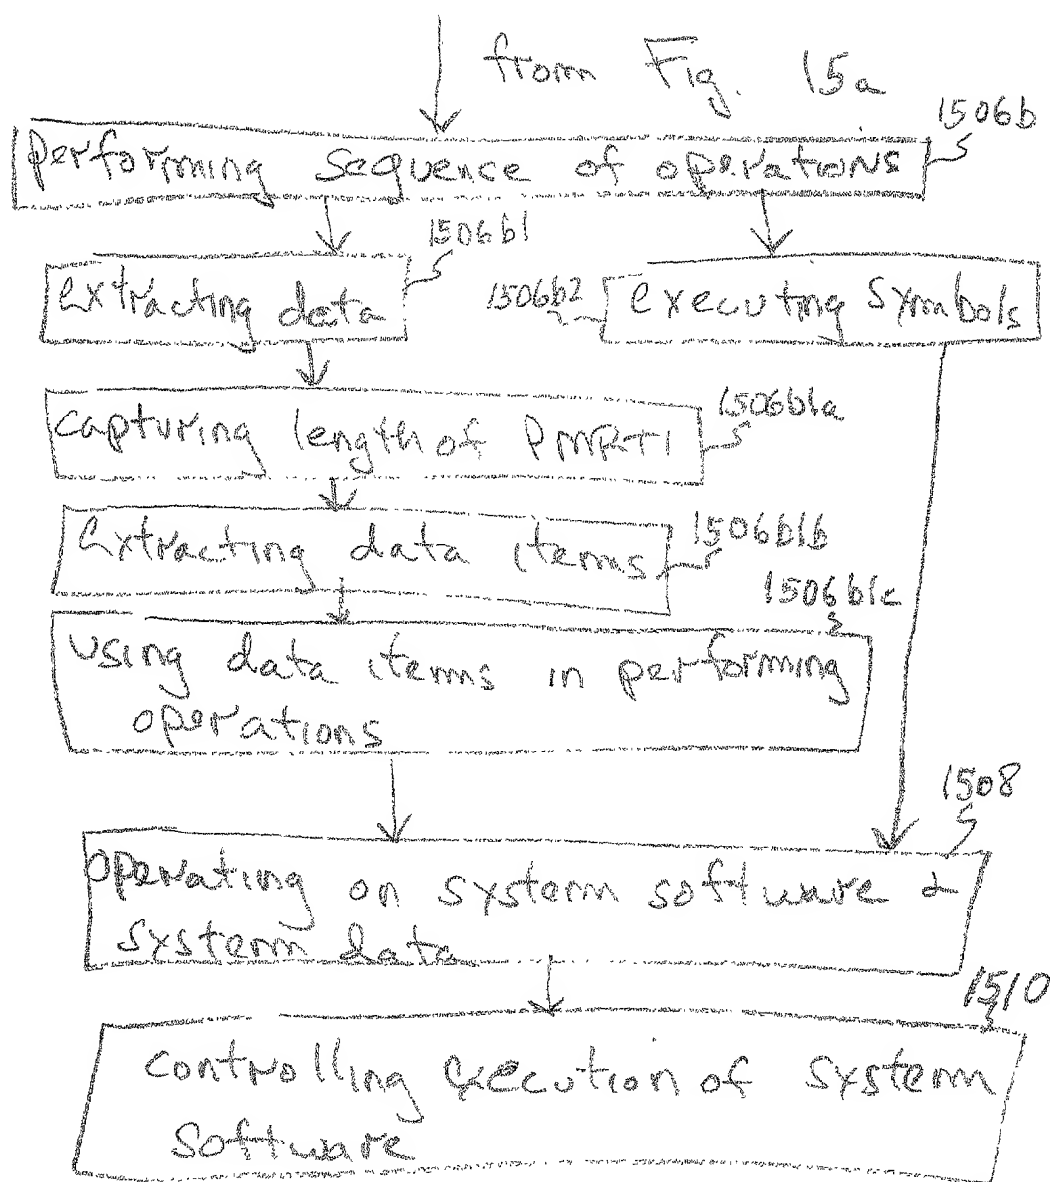 from Fig. 15a
1506b
performing sequence of operations
1506b1
extracting data
1506b2
executing symbols
1506b1a
capturing length of
1506b1b
extracting data items
1506b1c
using data items in performing
operations
1508
operating on system software &
system data
1510
controlling execution of system
software